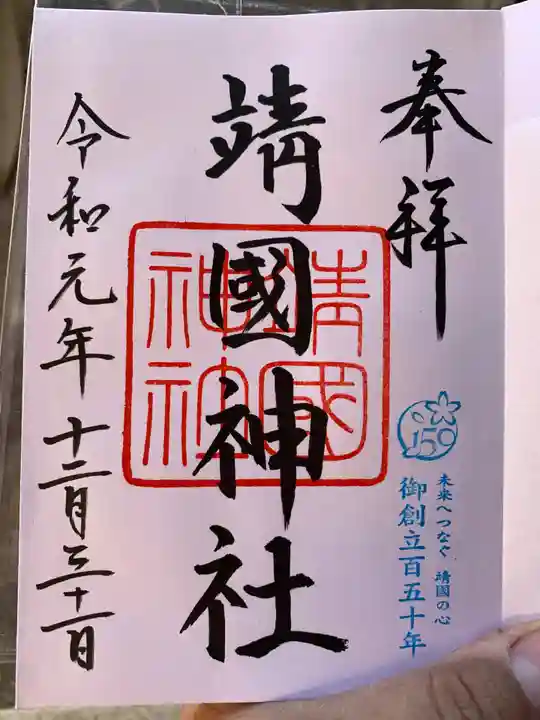 奉拝
150
未来へつなぐ 靖國の心
御創立百五十年
靖國神社
靖國神社
令和元年十二月三十一日